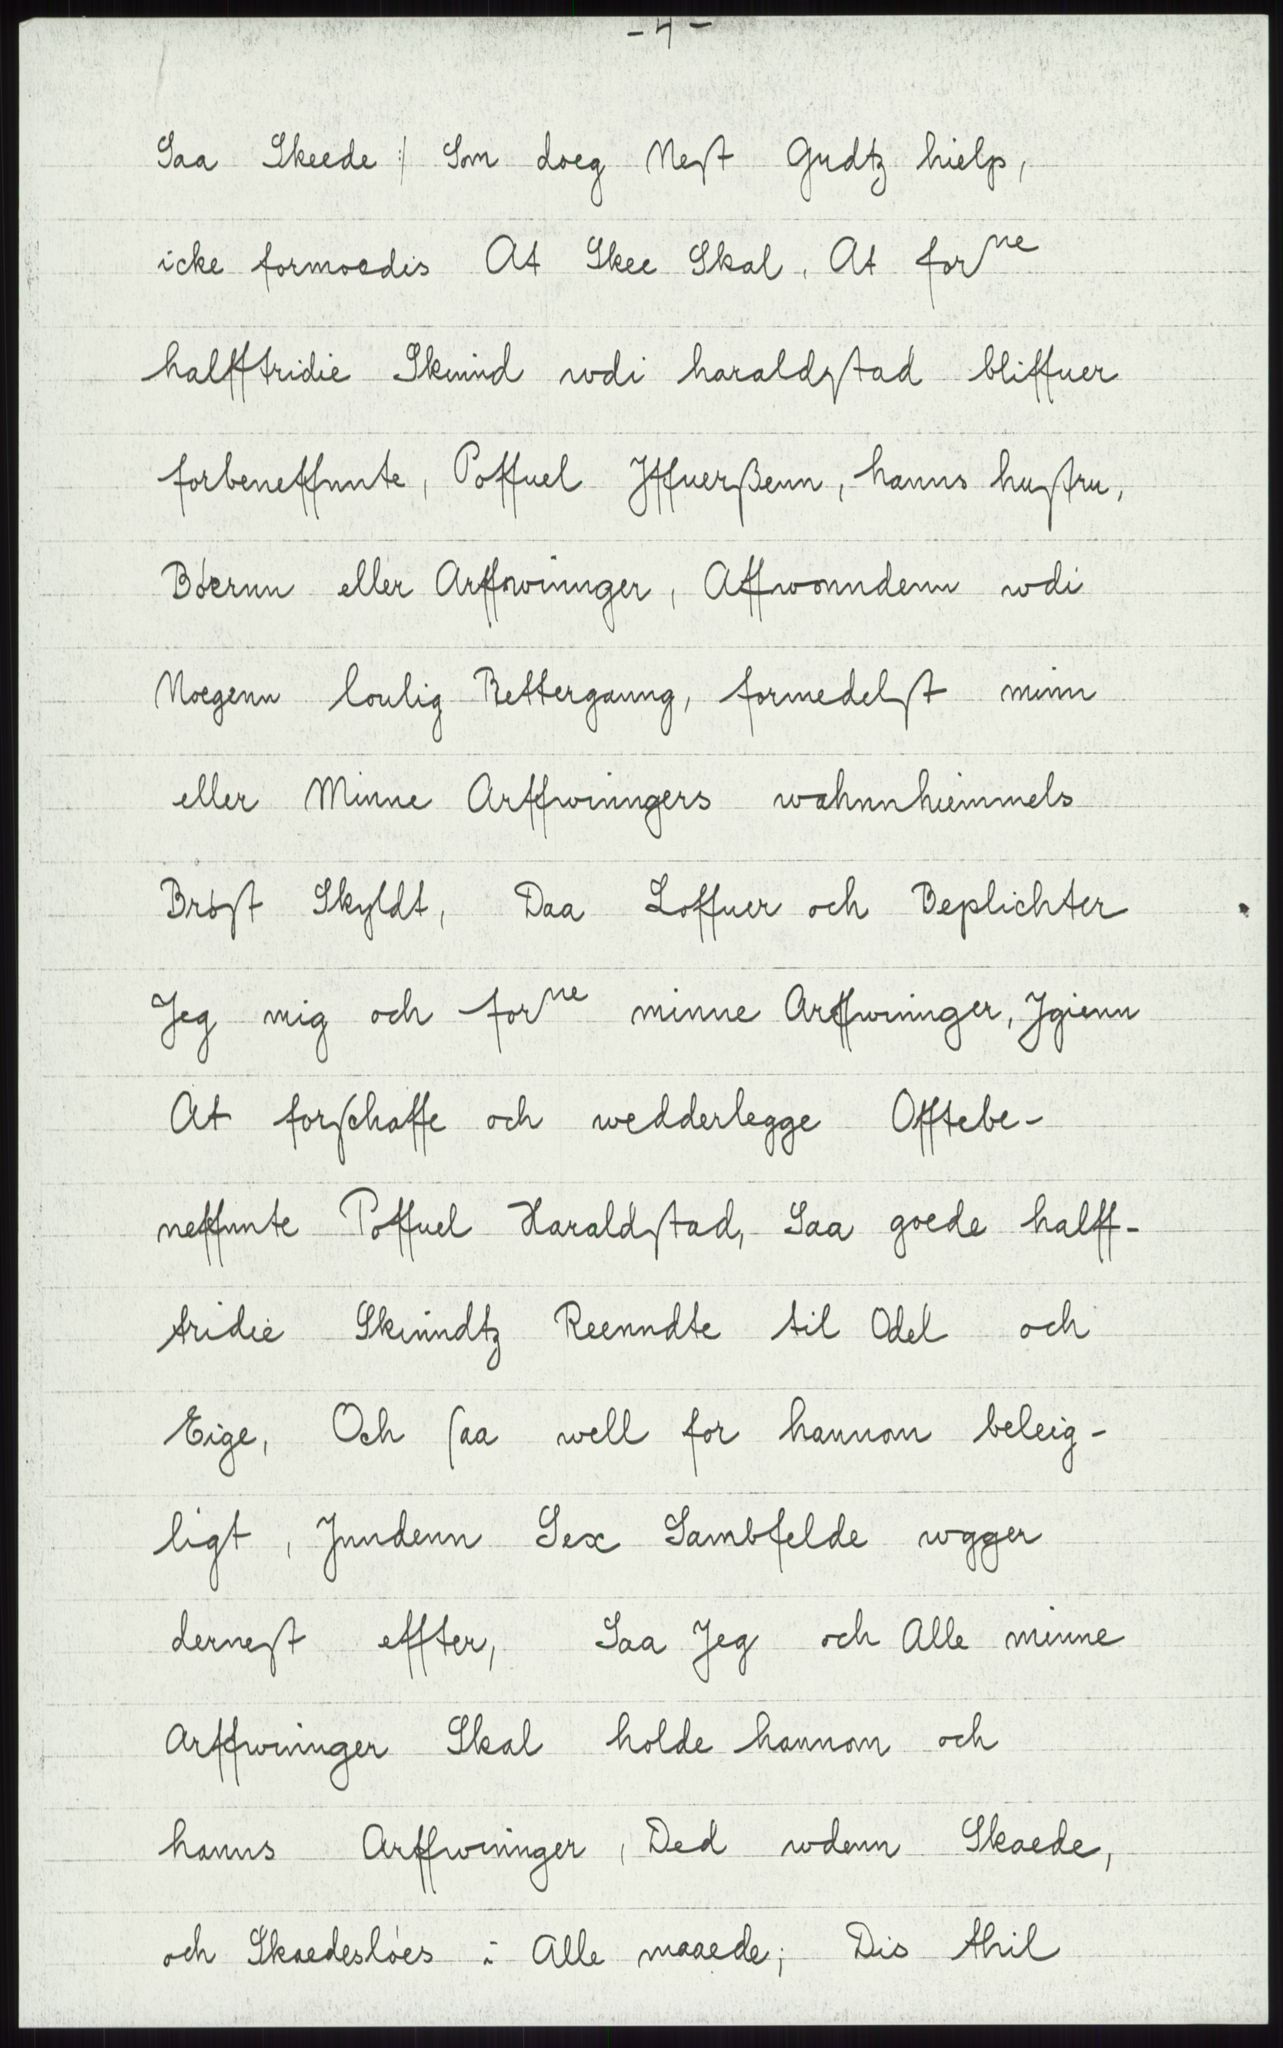 - 4 -
Saa Skeede :/ Som doeg Nest Gudtz hielp,
icke formoedis At Skee Skal, At forne
halfftridie Skinnd wdi haraldstad bliffuer
forbeneffnnte, Poffuel Jffuerßenn, hanns hustru,
Bóernn eller Arffwinnger, Affwonndenn wdi
Noegenn loulig Retterganng, formedelst minn
eller Minne Arffwinngers wahnnhiemmels
Bróst Skyldt, Daa Loffuer och Beplichter
Jeg mig och forne minne Arffwinnger, Jgienn
At forschaffe och wedderlegge Offtebe-
neffnnte Poffuel Haraldstad, Saa goede halff-
tridie Skinndtz Reenndte til Odel och
Eige, Och saa well for hannom beleig-
ligt, Jnndenn Sex Sambfelde wgger
dernest effter, Saa Jeg och Alle minne
Arffwinnger Skal holde hannom och
hanns Arffwinnger, Ded wdenn Skaede,
och Skaedeslóes i Alle maaede; Dis thil